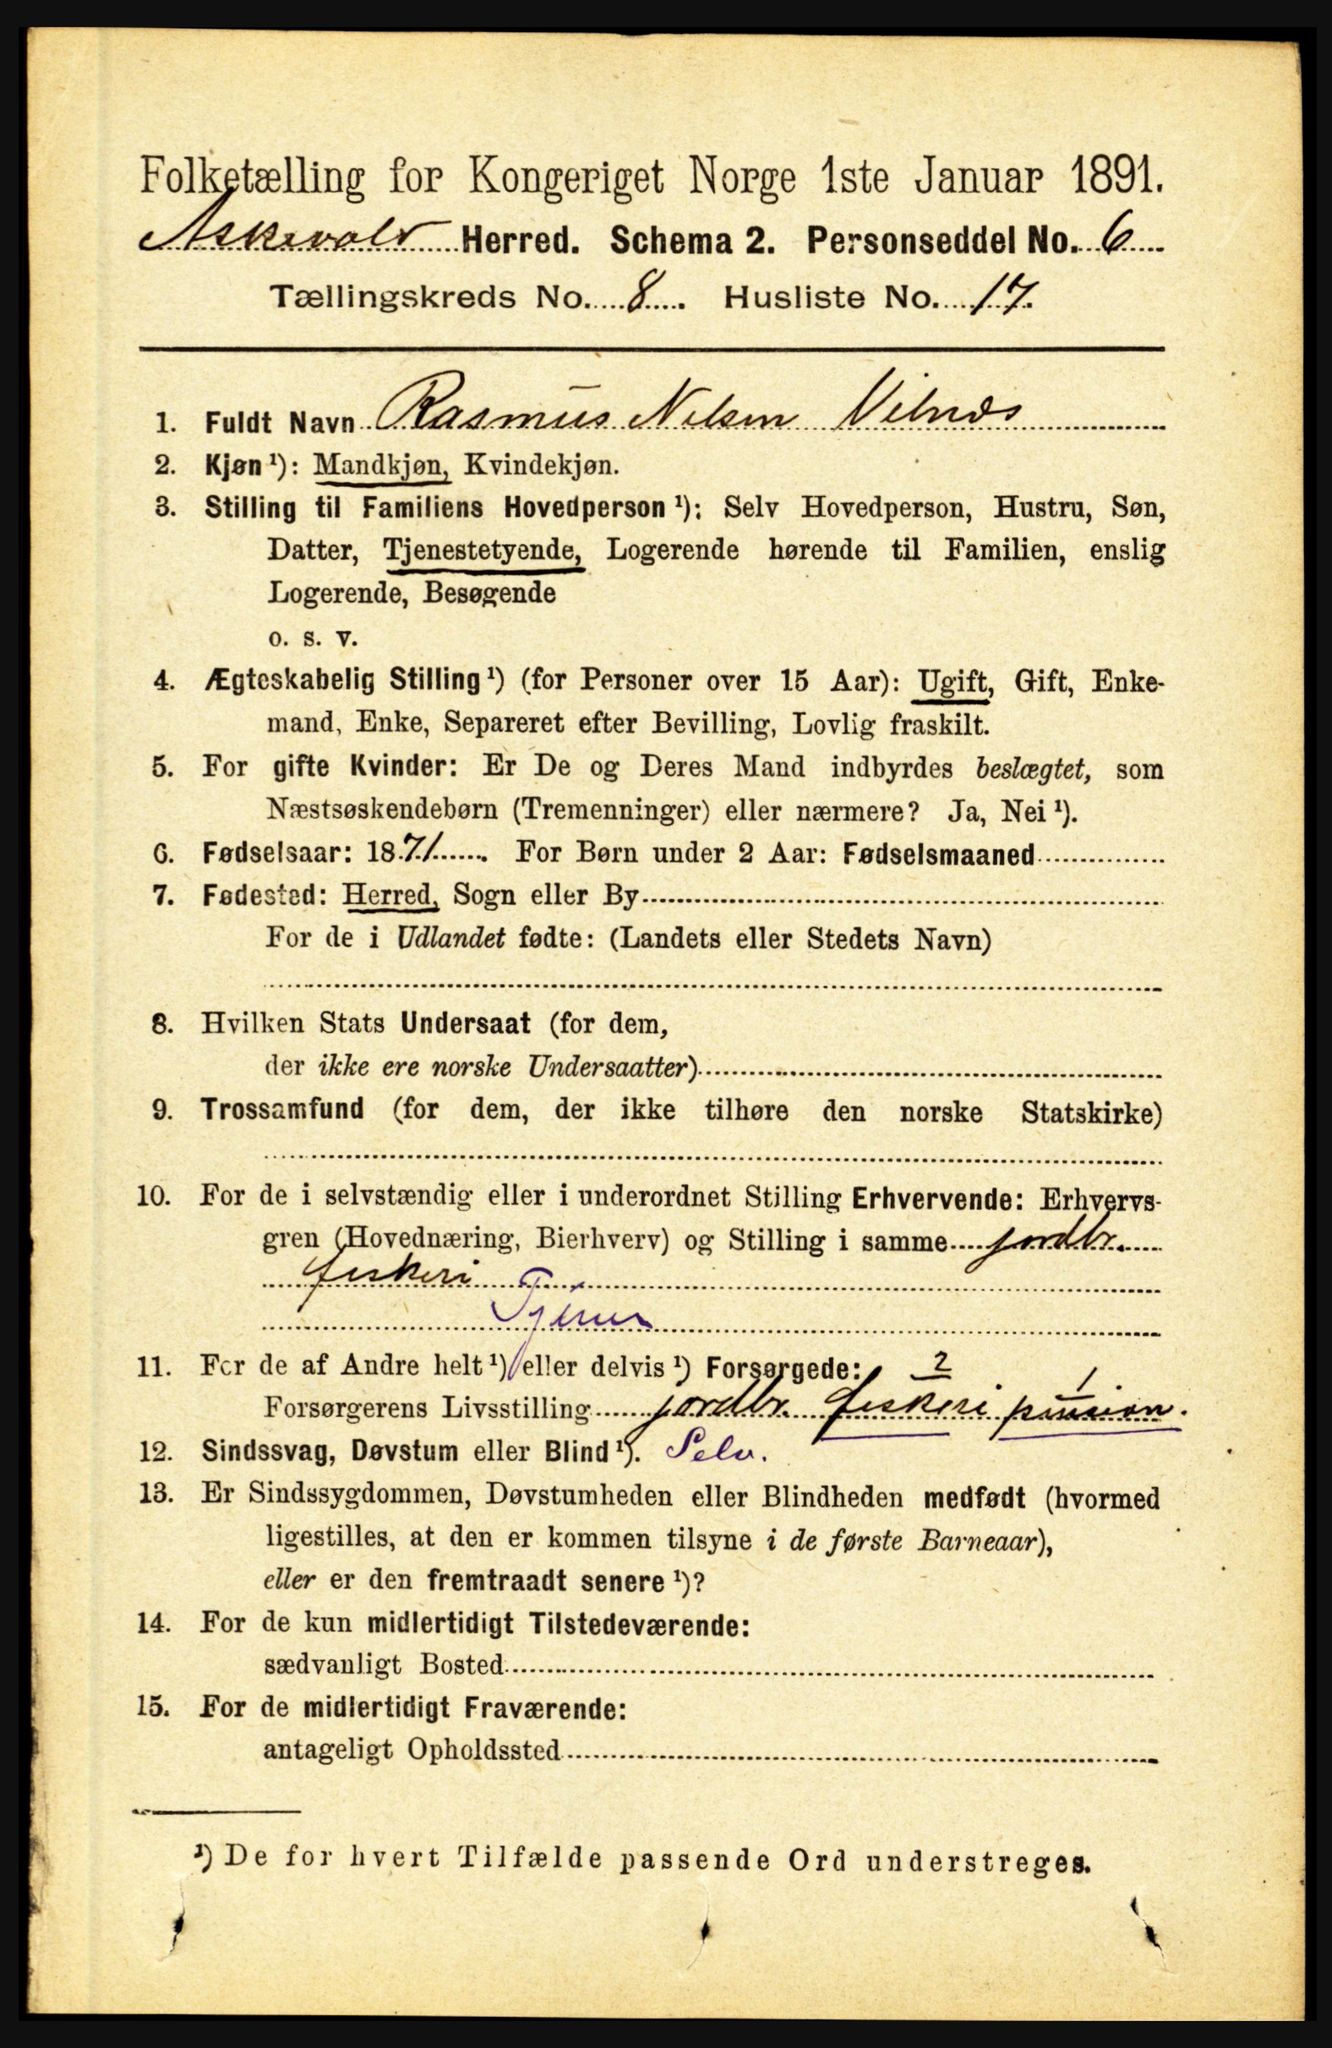 Folketælling for Kongeriget Norge 1ste Januar 1891.
Askevold Herred. Schema 2. Personseddel No. 6
Tællingskreds No. 8. Husliste No. 17.
1. Fuldt Navn Rasmus Nilsen Vilnæs
2. Kjøn ¹): Mandkjøn, Kvindekjøn.
3. Stilling til Familiens Hovedperson ¹): Selv Hovedperson, Hustru, Søn,
Datter, Tjenestetyende, Logerende hørende til Familien, enslig
Logerende, Besøgende
o. s. v.
4. Ægteskabelig Stilling ¹) (for Personer over 15 Aar): Ugift, Gift, Enke-
mand, Enke, Separeret efter Bevilling, Lovlig fraskilt.
5. For gifte Kvinder: Er De og Deres Mand indbyrdes beslægtet, som
Næstsøskendebørn (Tremenninger) eller nærmere? Ja, Nei ¹).
6. Fødselsaar: 1871. For Børn under 2 Aar: Fødselsmaaned
7. Fødested: Herred, Sogn eller By
For de i Udlandet fødte: (Landets eller Stedets Navn)
8. Hvilken Stats Undersaat (for dem,
der ikke ere norske Undersaatter)
9. Trossamfund (for dem, der ikke tilhøre den norske Statskirke)
10. For de i selvstændig eller i underordnet Stilling Erhvervende: Erhvervs-
gren (Hovednæring, Bierhverv) og Stilling i samme jordbr.
fiskeri
Tjener
11. For de af Andre helt ¹) eller delvis ¹) Forsørgede: 2 1
Forsørgerens Livsstilling jordbr. fiskeri pension.
12. Sindssvag, Døvstum eller Blind ¹). Selv.
13. Er Sindssygdommen, Døvstumheden eller Blindheden medfødt (hvormed
ligestilles, at den er kommen tilsyne i de første Barneaar),
eller er den fremtraadt senere ¹)?
14. For de kun midlertidigt Tilstedeværende:
sædvanligt Bosted
15. For de midlertidigt Fraværende:
antageligt Opholdssted
¹) De for hvert Tilfælde passende Ord understreges.